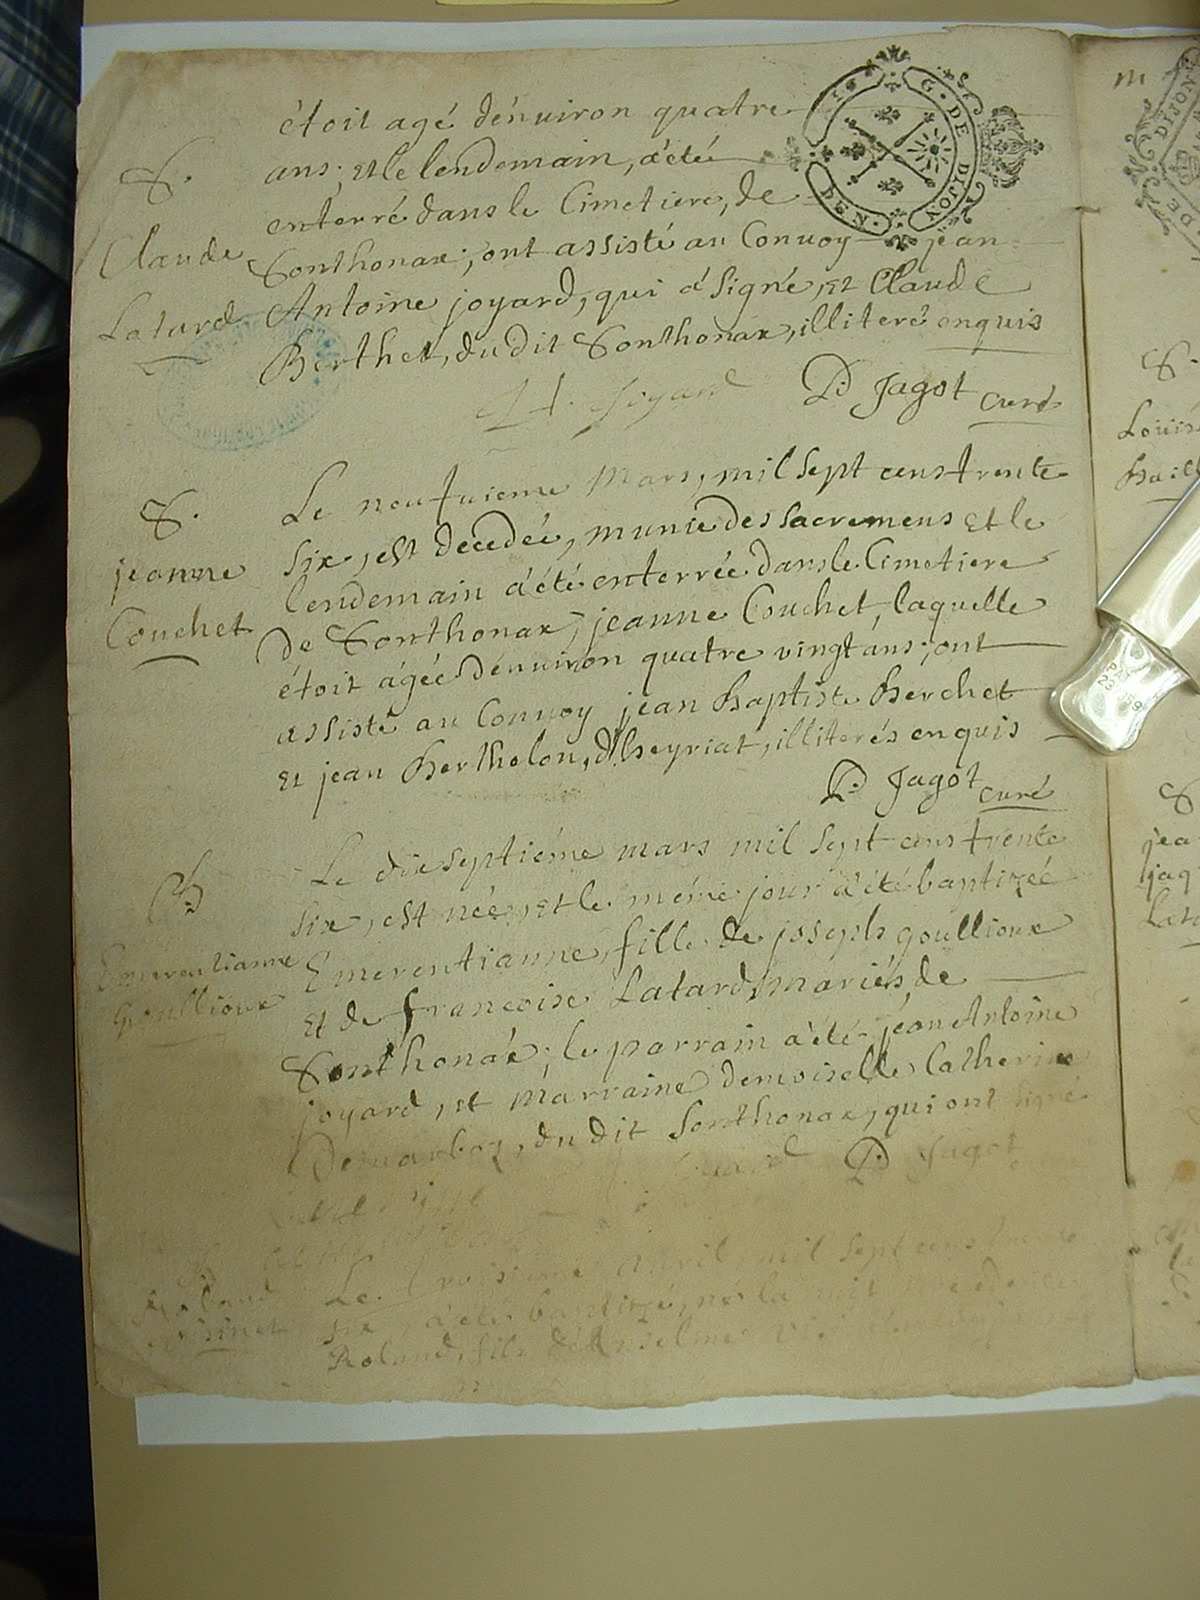 G. DE DIJON
DEN.
étoit agé dénuiron quatre
ans; et le lendemain, a'été
enterré dans le Cimetiere, de
Sonthonax; ont assisté au Conuoy jean
Antoine joyard, qui a signé, et Claude
Berthet, du dit Sonthonax, illiteré enquis
joyard P: Jagot curé
S.
Claude
Latard
Le neufuieme mars, mil sept cens trente
six, est decedée, munie des sacremens et le
lendemain a'été enterrée dans le Cimetiere
de Sonthonax, jeanne Couchet, laquelle
étoit ágée dénuiron quatre vingt ans; ont
assisté au Conuoy jean Baptiste Berchet
et jean Berthelon, d'heyriat, illiterés enquis
P: Jagot curé
S.
jeanne
Couchet
Le dix septiéme mars mil sept cens trente
six, est née, et le même jour a'été baptizée
Emerentianne, fille de joseph goullioux
et de francoise Latard, mariés, de
Sonthonax; le parrain a'été jean Antoine
joyard, et marraine demoiselle Catherine
du dit Sonthonax, qui ont signé
P: Jagot
B
Emerentianne
goullioux
Le troisieme auril mil sept cens trente
six, a'été baptizé, né la nuit
Roland, fils d'Anselme
Roland
m
DIJON
DE
S.
Louis
S
jea
jaq
Lata